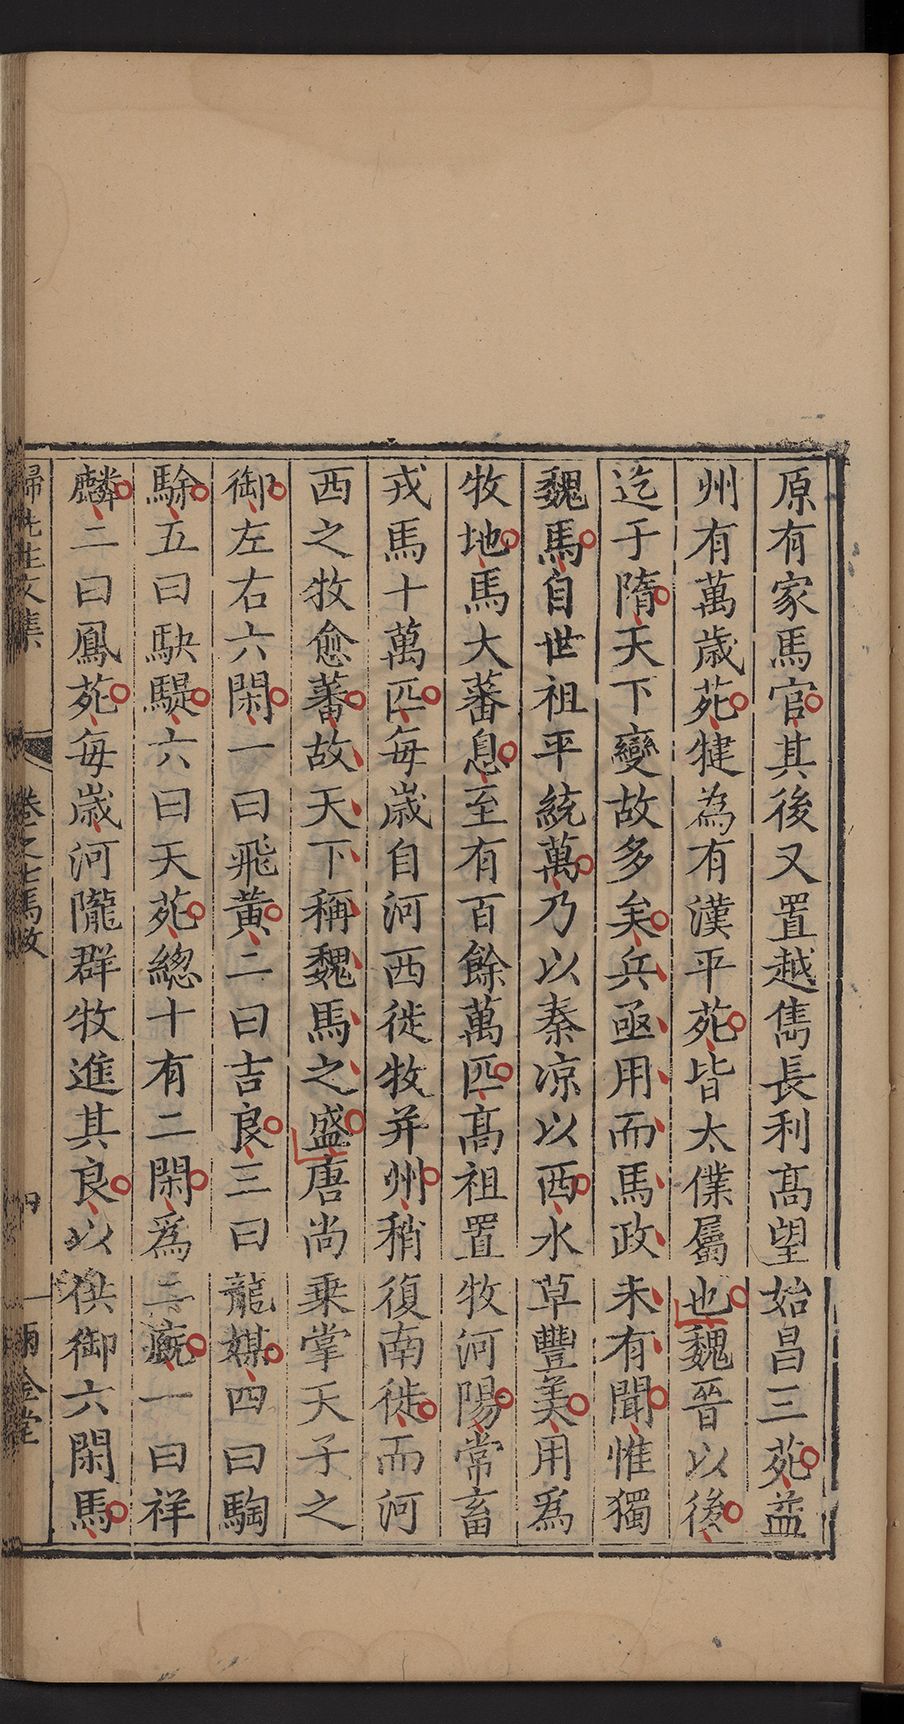 原有家馬官其後又置越雋長利髙望始昌三苑益
州有萬歲苑犍為有漢平苑皆太僕屬也魏晉以後
迄于隋天下變故多矣兵亟用而馬政未有聞惟獨
魏馬自世祖平統萬乃以秦凉以西水草豐美用爲
牧地馬大蕃息至有百餘萬匹髙祖置牧河陽常畜
戎馬十萬匹每歲自河西徙牧并州稍復南徙而河
西之牧愈蕃故天下稱魏馬之盛唐尚乗掌天子之
御左右六閑一曰飛黃二曰吉良三曰龍媒四曰騊
駼五曰駃騠六曰天苑總十有二閑爲二廐一曰祥
麟二曰鳳苑每歲河隴群牧進其良以供御六閑馬
歸先生文集 卷之七馬政 四 雨金堂